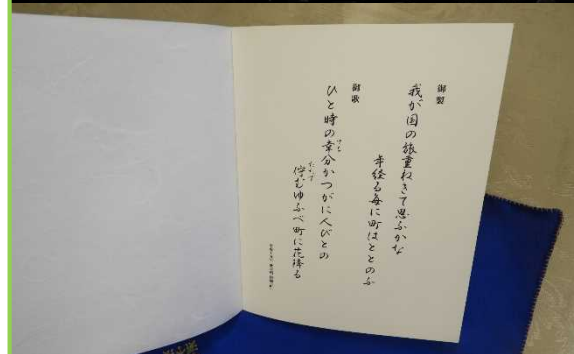 御製
我が国の旅重ねきて思ふかな
年経る毎に町はととのふ
御歌
ひと時の幸分かつがに人びとの
佇むゆふべ町に花降る